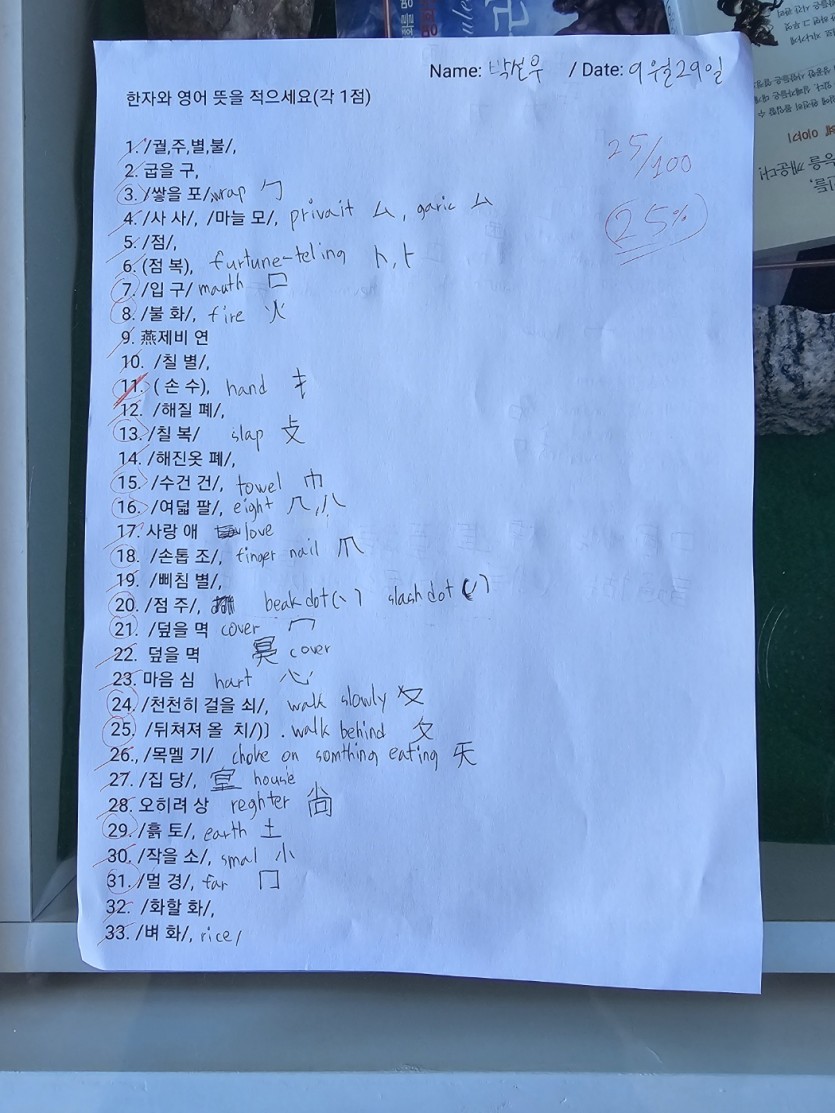 Name: 박선우 / Date: 9월29일
한자와 영어 뜻을 적으세요(각 1점)
25/100
25%
1. /궐,주,별,불/,
2. 굽을 구,
3. /쌓을 포/, wrap 勹
4. /사 사/, /마늘 모/, privait 厶, garic 厶
5. /점/,
6. (점 복), furtune-teling 卜, ⺊
7. /입 구/ mouth 口
8. /불 화/, fire 火
9. 燕제비 연
10. /칠 별/,
11. ( 손 수), hand 扌
12. /해질 폐/,
13. /칠 복/ slap 攴
14. /해진옷 폐/,
15. /수건 건/, towel 巾
16. /여덟 팔/, eight 八, 八
17. 사랑 애 love
18. /손톱 조/, finger nail 爪
19. /삐침 별/,
20. /점 주/, beak dot(丶) slash dot ()
21. /덮을 멱 cover 冖
22. 덮을 멱 cover
23. 마음 심 hart 心
24. /천천히 걸을 쇠/, walk slowly 夊
25. /뒤쳐져 올 치/)〕. walk behind 夂
26., /목멜 기/ choke on somthing eating 旡
27. /집 당/, house
28. 오히려 상 reghter 尙
29. /흙 토/, earth 土
30. /작을 소/, smal 小
31. /멀 경/, far 冂
32. /화할 화/,
33. /벼 화/, rice/